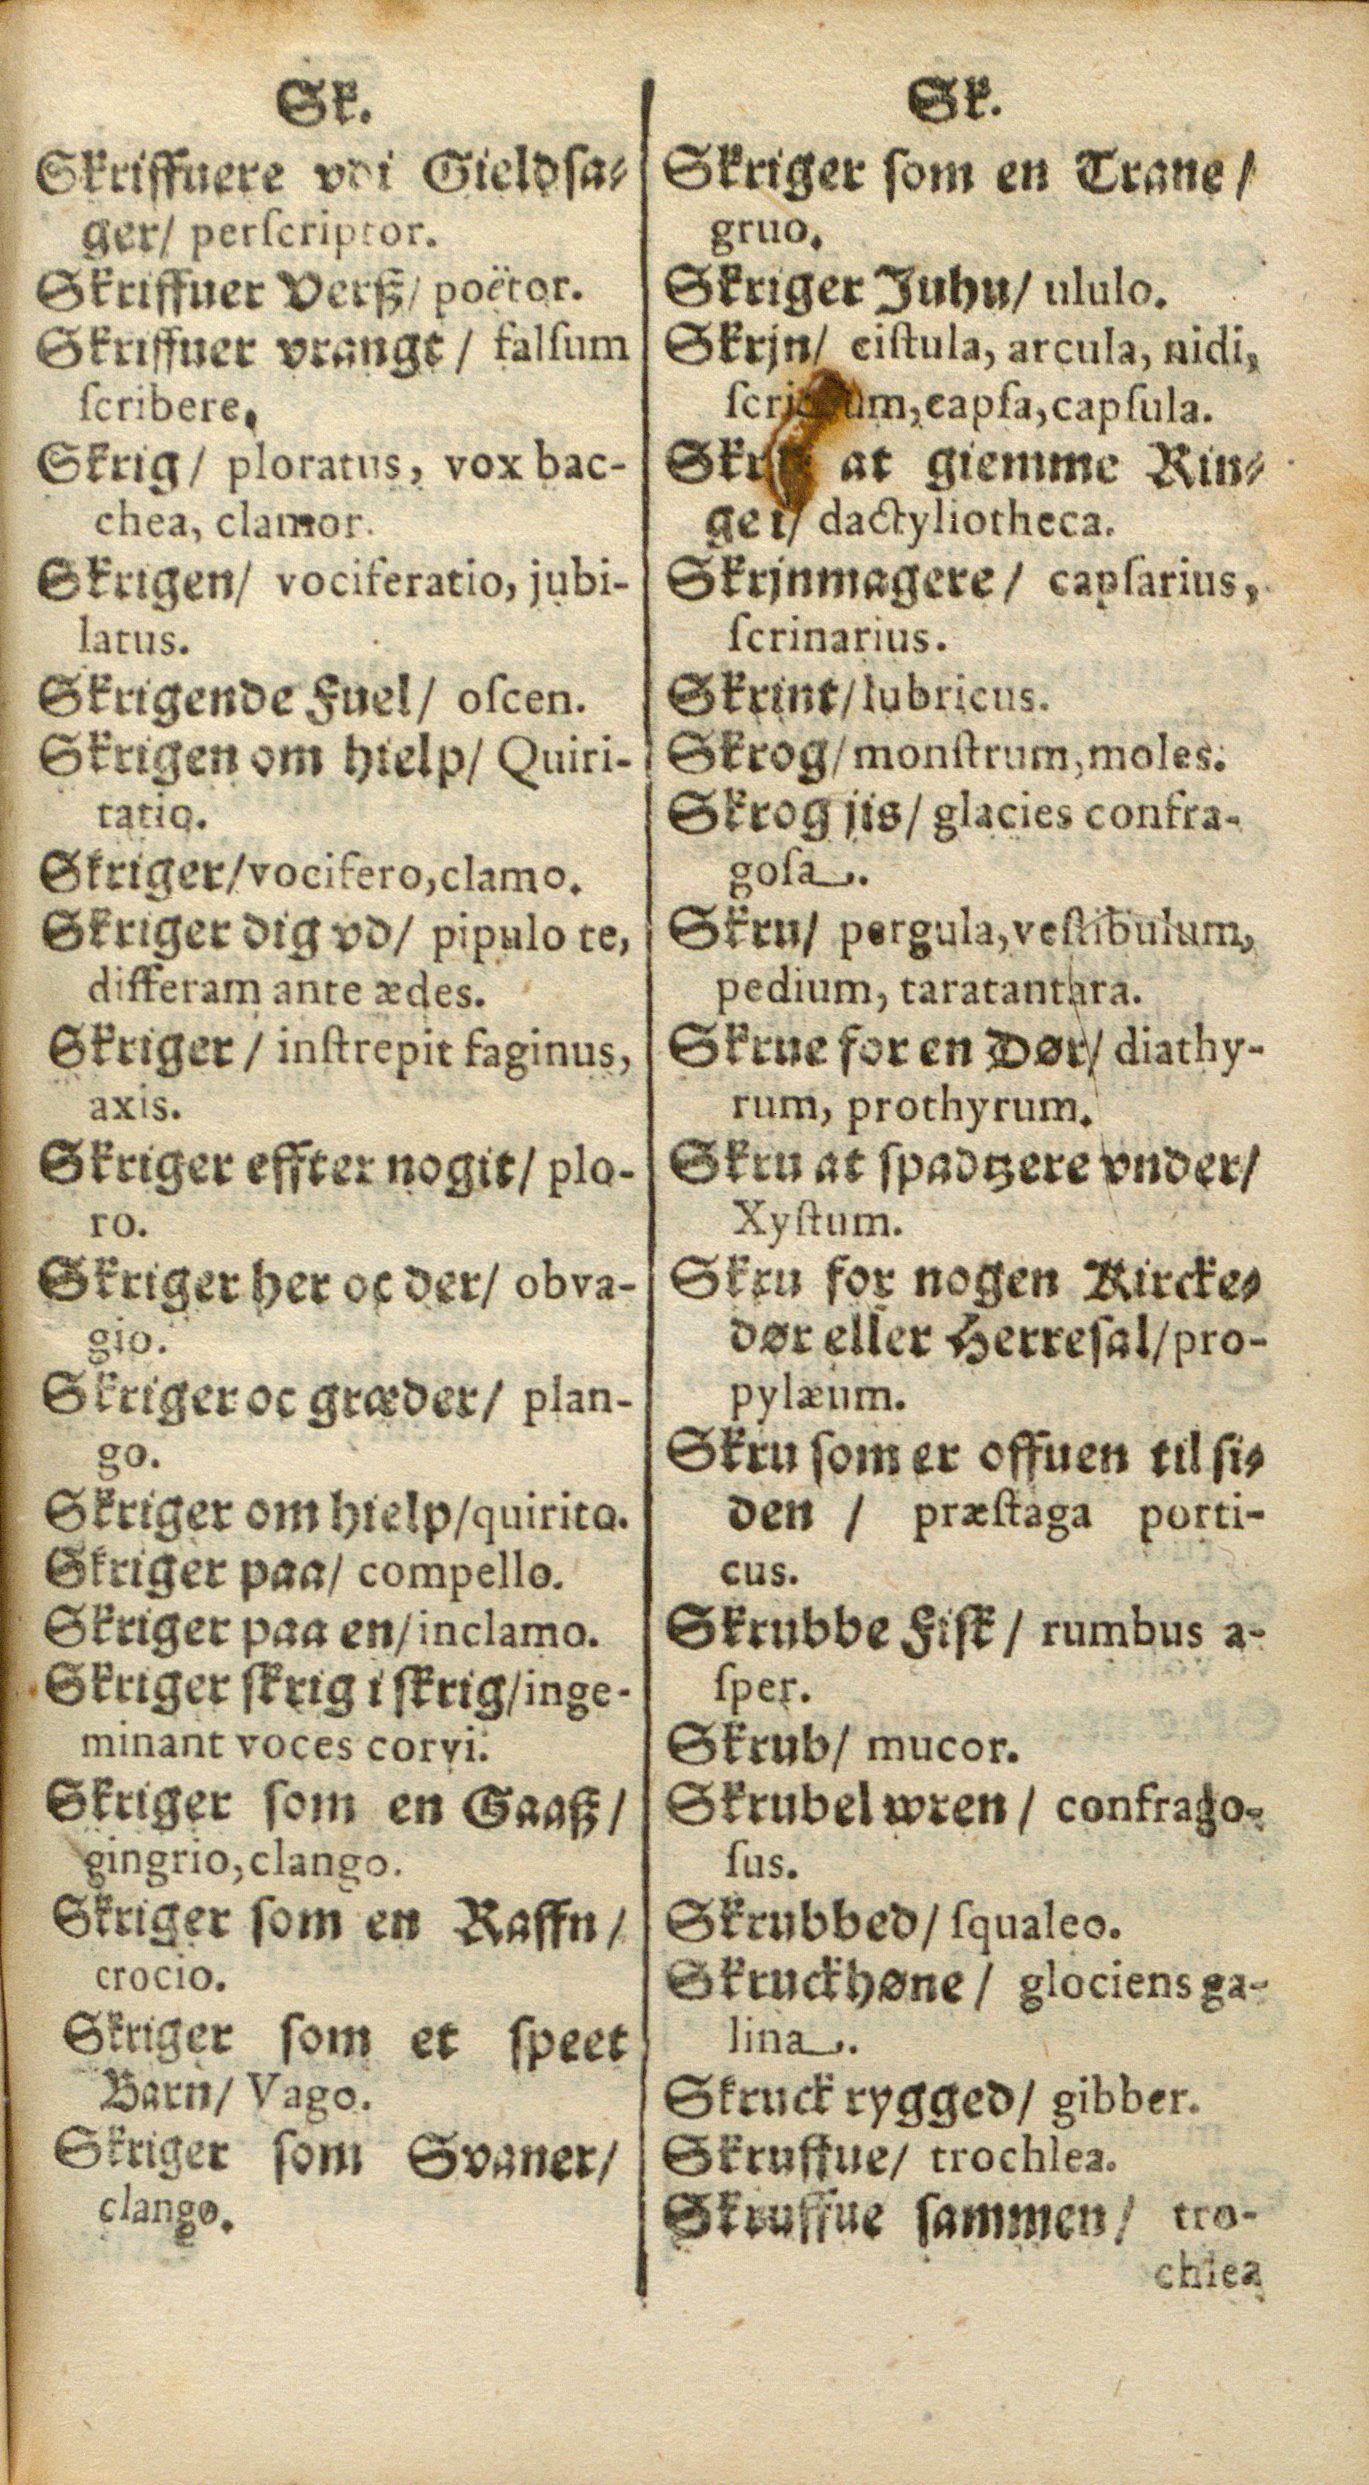 Sk.
Skriffuere vdi Gieldsa⸗
ger/ perſcriptor.
Skriffuer Verß/ poëtor.
Skriffuer vrangt/ falſum
ſcribere.
Skrig/ ploratus, vox bac-
chea, clamor.
Skrigen/ vociferatio, jubi-
latus.
Skrigende Fuel/ oſcen.
Skrigen om hielp/ Quiri-
tatio.
Skriger/ vocifero, clamo.
Skriger dig vd/ pipulo te,
differam ante ædes.
Skriger/ inſtrepit faginus,
axis.
Skriger effter nogit/ plo-
ro.
Skriger her oc der/ obva-
gio.
Skriger oc græder/ plan-
go.
Skriger om hielp/ quirito.
Skriger paa/ compello.
Skriger paa en/ inclamo.
Skriger ſkrig i ſkrig/ inge-
minant voces corvi.
Skriger ſom en Gaaß/
gingrio, clango.
Skriger ſom en Raffn/
crocio.
Skriger ſom et ſpeet
Barn/ Vago.
Skriger ſom Svaner/
clango.
Sk.
Skriger ſom en Trane/
gruo.
Skriger Juhu/ ululo.
Skrjn/ ciſtula, arcula, nidi,
capſa, capſula.
at giemme Rin⸗
ge i/ dactyliotheca.
Skrjnmagere/ capſarius,
ſcrinarius.
Skrint/ lubricus.
Skrog/ monſtrum, moles.
Skrog jis/ glacies confra-
goſa.
Skru/ pergula, veſtibulum,
pedium, taratantara.
Skrue for en Dør/ diathy-
rum, prothyrum.
Skru at ſpadtzere vnder/
Xyſtum.
Skru for nogen Kircke⸗
dør eller Herreſal/ pro-
pylæum.
Skru ſom er offuen til ſi⸗
den/ præſtaga porti-
cus.
Skrubbe Fiſk/ rumbus a-
ſper.
Skrub/ mucor.
Skrubel wren/ confrago-
ſus.
Skrubbed/ ſqualeo.
Skruckhøne/ glociens ga-
lina.
Skruck rygged/ gibber.
Skruffue/ trochlea.
Skruffue ſammen/ tro-
chlea